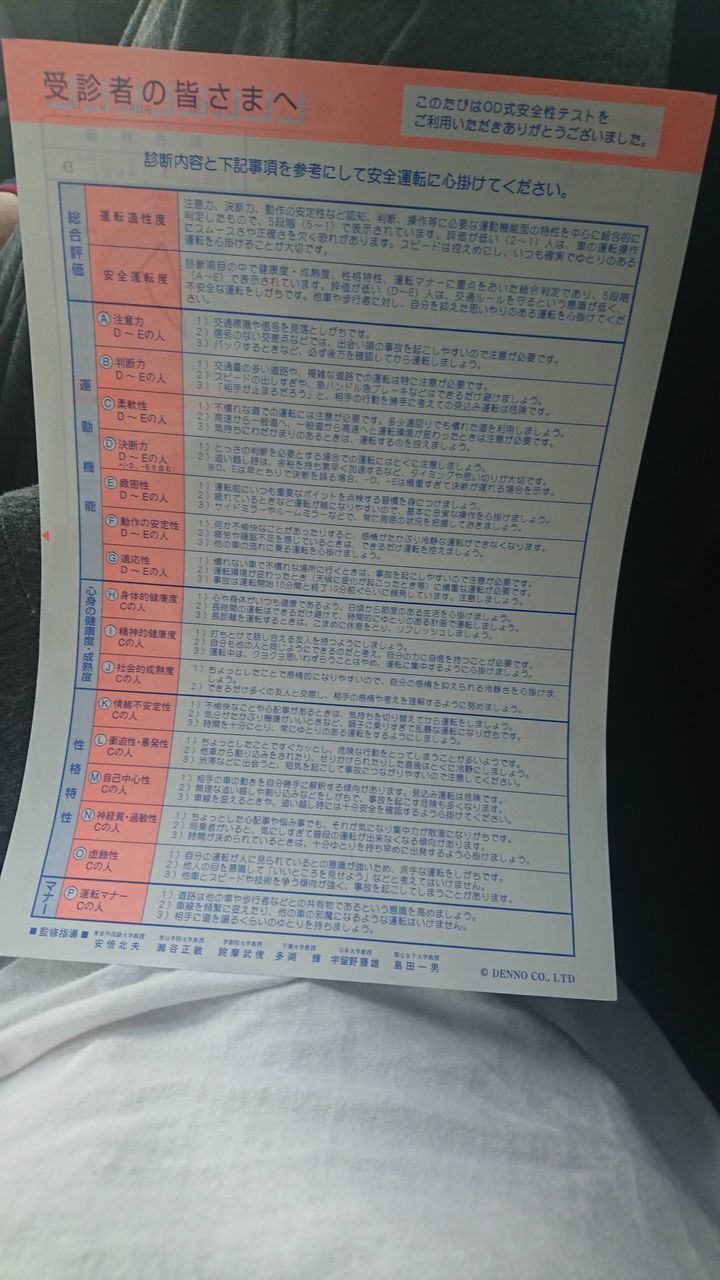 受診者の皆さまへ
このたびはOD式安全性テストを
ご利用いただきありがとうございました。
診断内容と下記事項を参考にして安全運転に心掛けてください。
総合評価
運転適性度
注意力、決断力、動作の安定性など認知、判断、操作等に必要な運動機能面の特性を中心に総合的に
判定したもので、5段階（5～1）で表示されています。評価が低い（2～1）人は、車の運転操作
にスムースさや正確さを欠く恐れがあります。スピードは控えめにし、いつも確実でゆとりのある
運転を心掛けることが大切です。
安全運転度
診断項目の中で健康度・成熟度、性格特性、運転マナーに重点をおいた総合判定であり、5段階
（A～E）で表示されています。評価が低い（D～E）人は、交通ルールを守るという意識が低く、
不安全な運転をしがちです。他車や歩行者に対し、自分を抑えた思いやりのある運転を心掛けてくだ
さい。
運動機能
Ⓐ注意力
D～Eの人
1）交通標識や信号を見落としがちです。
2）信号のない交差点などでは、出会い頭の事故を起こしやすいので注意が必要です。
3）バックするときなど、必ず後方を確認してから運転しましょう。
Ⓑ判断力
D～Eの人
1）交通量の多い道路や、複雑な道路での運転は特に注意が必要です。
2）スピードの出しすぎや、急ハンドル急ブレーキなどはできるだけ避けましょう。
3）「相手が止まるだろう」と、相手の行動を勝手に考えての見込み運転は危険です。
Ⓒ柔軟性
D～Eの人
1）不慣れな道での運転には注意が必要です。多少遠回りでも慣れた道を利用しましょう。
2）高速から一般道へ、一般道から高速へと運転環境が変わったときは注意が必要です。
3）気持ちにわだかまりのあるときは、運転するのを控えましょう。
Ⓓ決断力
D～Eの人
*（-D、-Eを含む）
1）とっさの判断を必要とする場合での運転にはとくに注意しましょう。
2）追い越し時は、余裕を持ち素早く加速するなど、タイミングや思い切りが大切です。
※D、Eは早とちりで決断を誤る場合、-D、-Eは慎重すぎて決断が遅れる場合を示す。
Ⓔ緻密性
D～Eの人
1）運転前にいつも重要なポイントを点検する習慣を身につけましょう。
2）疲れているときなど運転が雑になりやすいので、基本に忠実な操作を心掛けましょう。
3）サイドミラーやルームミラーなどで、常に周囲の状況を把握しておきましょう。
Ⓕ動作の安定性
D～Eの人
1）何か不愉快なことがあったりすると、感情がたかぶり冷静な運転ができなくなります。
2）疲労や睡眠不足を感じているときは、できるだけ運転を控えましょう。
3）他の車の流れに乗る運転を心掛けましょう。
Ⓖ適応性
D～Eの人
1）慣れない車で不慣れな場所に行くときは、事故を起こしやすいので注意が必要です。
2）運転環境が変わったとき（天候に変化が起こったとき等）に慎重な運転が必要です。
3）事故は運転開始10分間と終了10分前ぐらいに頻発しています。注意しましょう。
心身の健康度・成熟度
Ⓗ身体的健康度
Cの人
1）心や身体がいつも健康であるよう、日頃から節度のある生活を心掛けましょう。
2）長時間の運転はできるだけ避けて、時間的にゆとりのある計画で運転しましょう。
3）長距離を運転するときは、こまめに休息をとり、リフレッシュしましょう。
Ⓘ精神的健康度
Cの人
1）打ちとけて話し合える友人を持つようにしましょう。
2）自分も他の人と同じようにできるのだと考え、自分の力に自信を持つことが必要です。
3）運転中は、クヨクヨ思いわずらうことはやめ、運転に集中するように心掛けましょう。
Ⓙ社会的成熟度
Cの人
1）ちょっとしたことで感情的になりやすいので、自分の感情を抑えられる冷静さを心掛けま
しょう。
2）できるだけ多くの友人と交際し、相手の感情や考えを理解するように努めましょう。
性格特性
Ⓚ情緒不安定性
Cの人
1）不愉快なことや心配事があるときは、気持ちを切り替えてから運転をしましょう。
2）気分がたかぶり機嫌がいいときなど、調子に乗りすぎて乱暴な運転になりがちです。
3）時間を十分にとり、常にゆとりのある運転をするようにしましょう。
Ⓛ衝迫性・暴発性
Cの人
1）ちょっとしたことですぐカッとし、危険な行動をとってしまうことが多いようです。
2）他車から割り込みをされたり、せりかけられたりした直後はとくに冷静にしましょう。
3）渋滞などに出会うと、短気を起こして事故につながりやすいので注意してください。
Ⓜ自己中心性
Cの人
1）相手の車の動きを自分勝手に解釈する傾向があります。見込み運転は危険です。
2）無理な追い越しや割り込みなどをしがちで、事故を起こす危険も多くなります。
3）車線を変えるときや、追い越し時には十分安全を確認するよう心掛けてください。
Ⓝ神経質・過敏性
Cの人
1）ちょっとした心配事や悩み事でも、それが気になり集中力が散漫になりがちです。
2）同乗者がいると、気にしすぎて普段の運転が出来なくなる傾向があります。
3）時間が決められているときは、十分ゆとりを持ち早めに出発するよう心掛けましょう。
Ⓞ虚飾性
Cの人
1）自分の運転が人に見られているとの意識が強いため、派手な運転をしがちです。
2）他人の目を意識して「いいところを見せよう」などと考えてはいけません。
3）他車とスピードや技術を争う傾向が強く、事故を起こしてしまうことがあります。
マナー
Ⓟ運転マナー
Cの人
1）道路は他の車や歩行者などとの共有物であるという意識を高めましょう。
2）車線を頻繁に変えたり、他の車の邪魔になるような運転はいけません。
3）相手に道を譲るくらいのゆとりを持ちましょう。
■監修指導■
東京外国語大学教授 青山学院大学教授 学習院大学教授 千葉大学教授 日本大学教授 聖心女子大学教授
安倍北夫 瀬谷正敏 詫摩武俊 多湖 輝 宇留野藤雄 島田一男
© DENNO CO., LTD